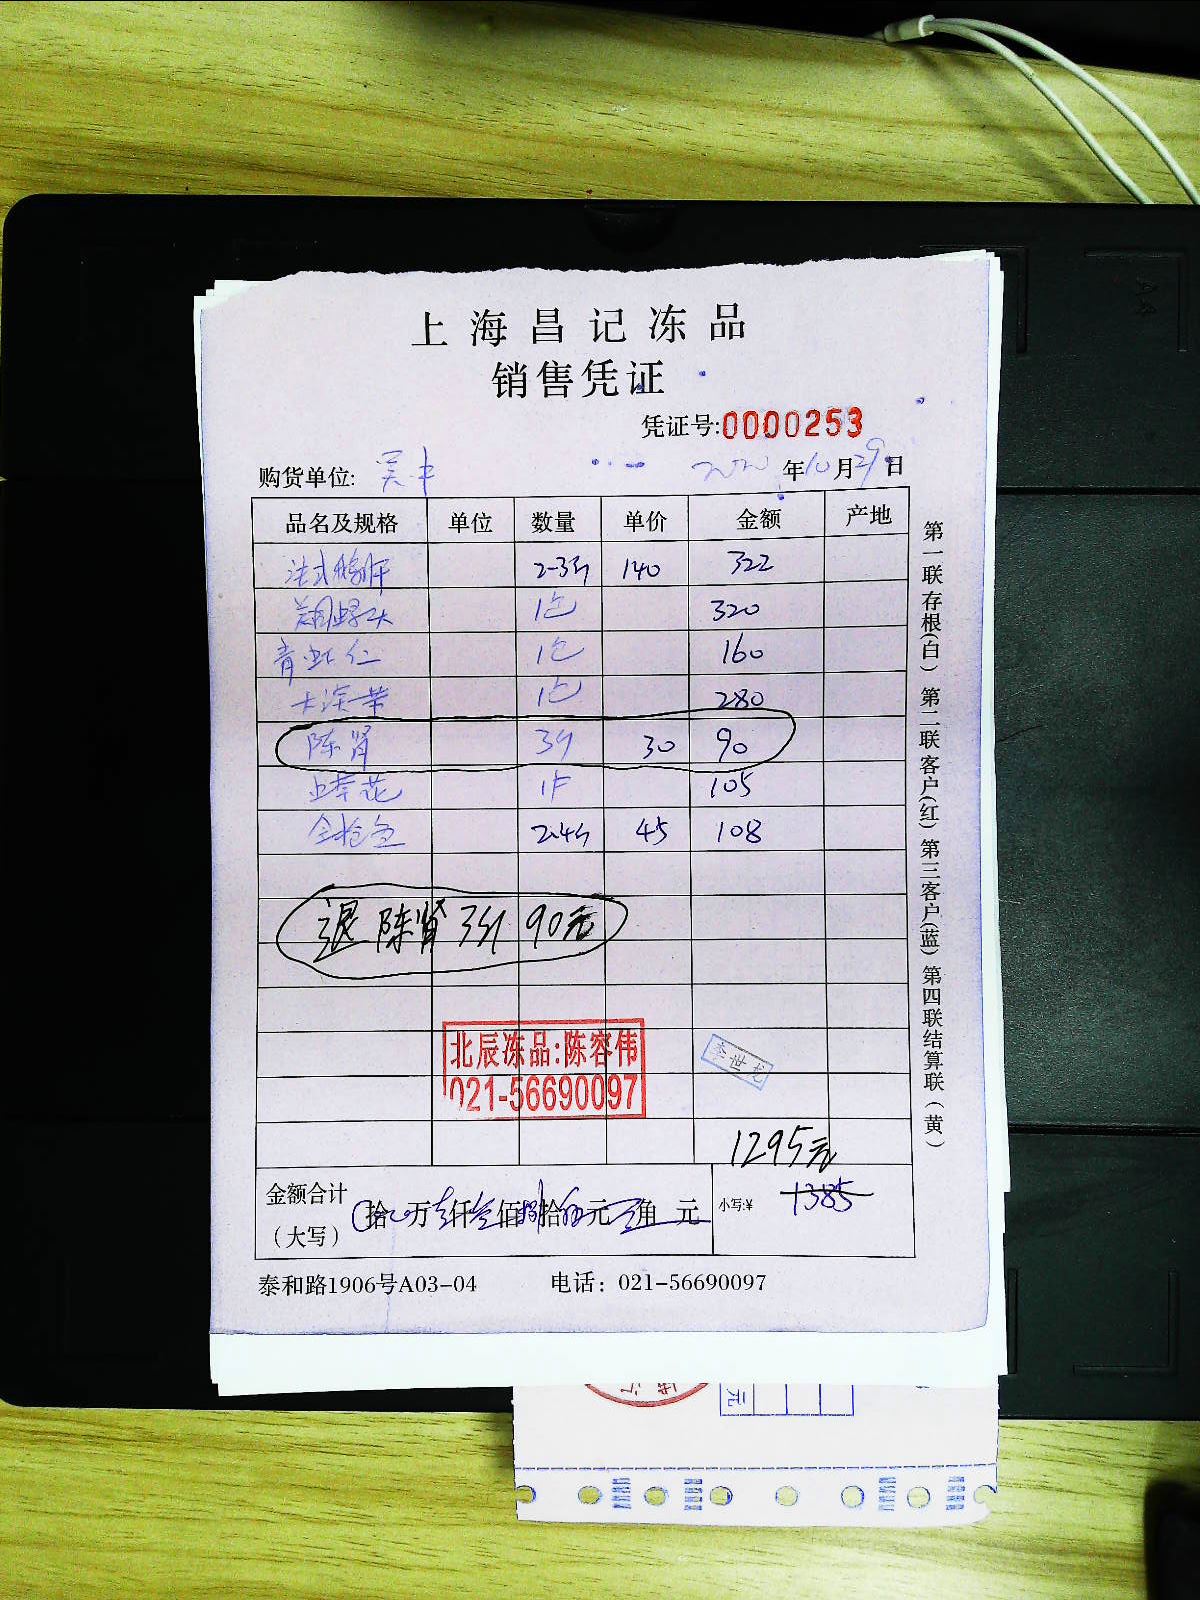 上海昌记冻品
销售凭证
凭证号:0000253
购货单位: 吴丰 2020年10月29日
品名及规格 单位 数量 单价 金额 产地
法式鹅肝 2-3斤 140 322
美国螺头 1包 320
青虾仁 1包 160
大海带 1包 280
陈肾 3斤 30 90
1件 105
金枪鱼 2.4斤 45 108
退 陈肾 3斤 90元
北辰冻品:陈容伟
021-56690097
李世龙
1295元
金额合计
(大写)
拾 万 仟 佰 拾 元 角 元
小写:¥ 1385
泰和路1906号A03-04 电话: 021-56690097
第一联存根(白) 第二联客户(红) 第三客户(蓝) 第四联结算联(黄)
元